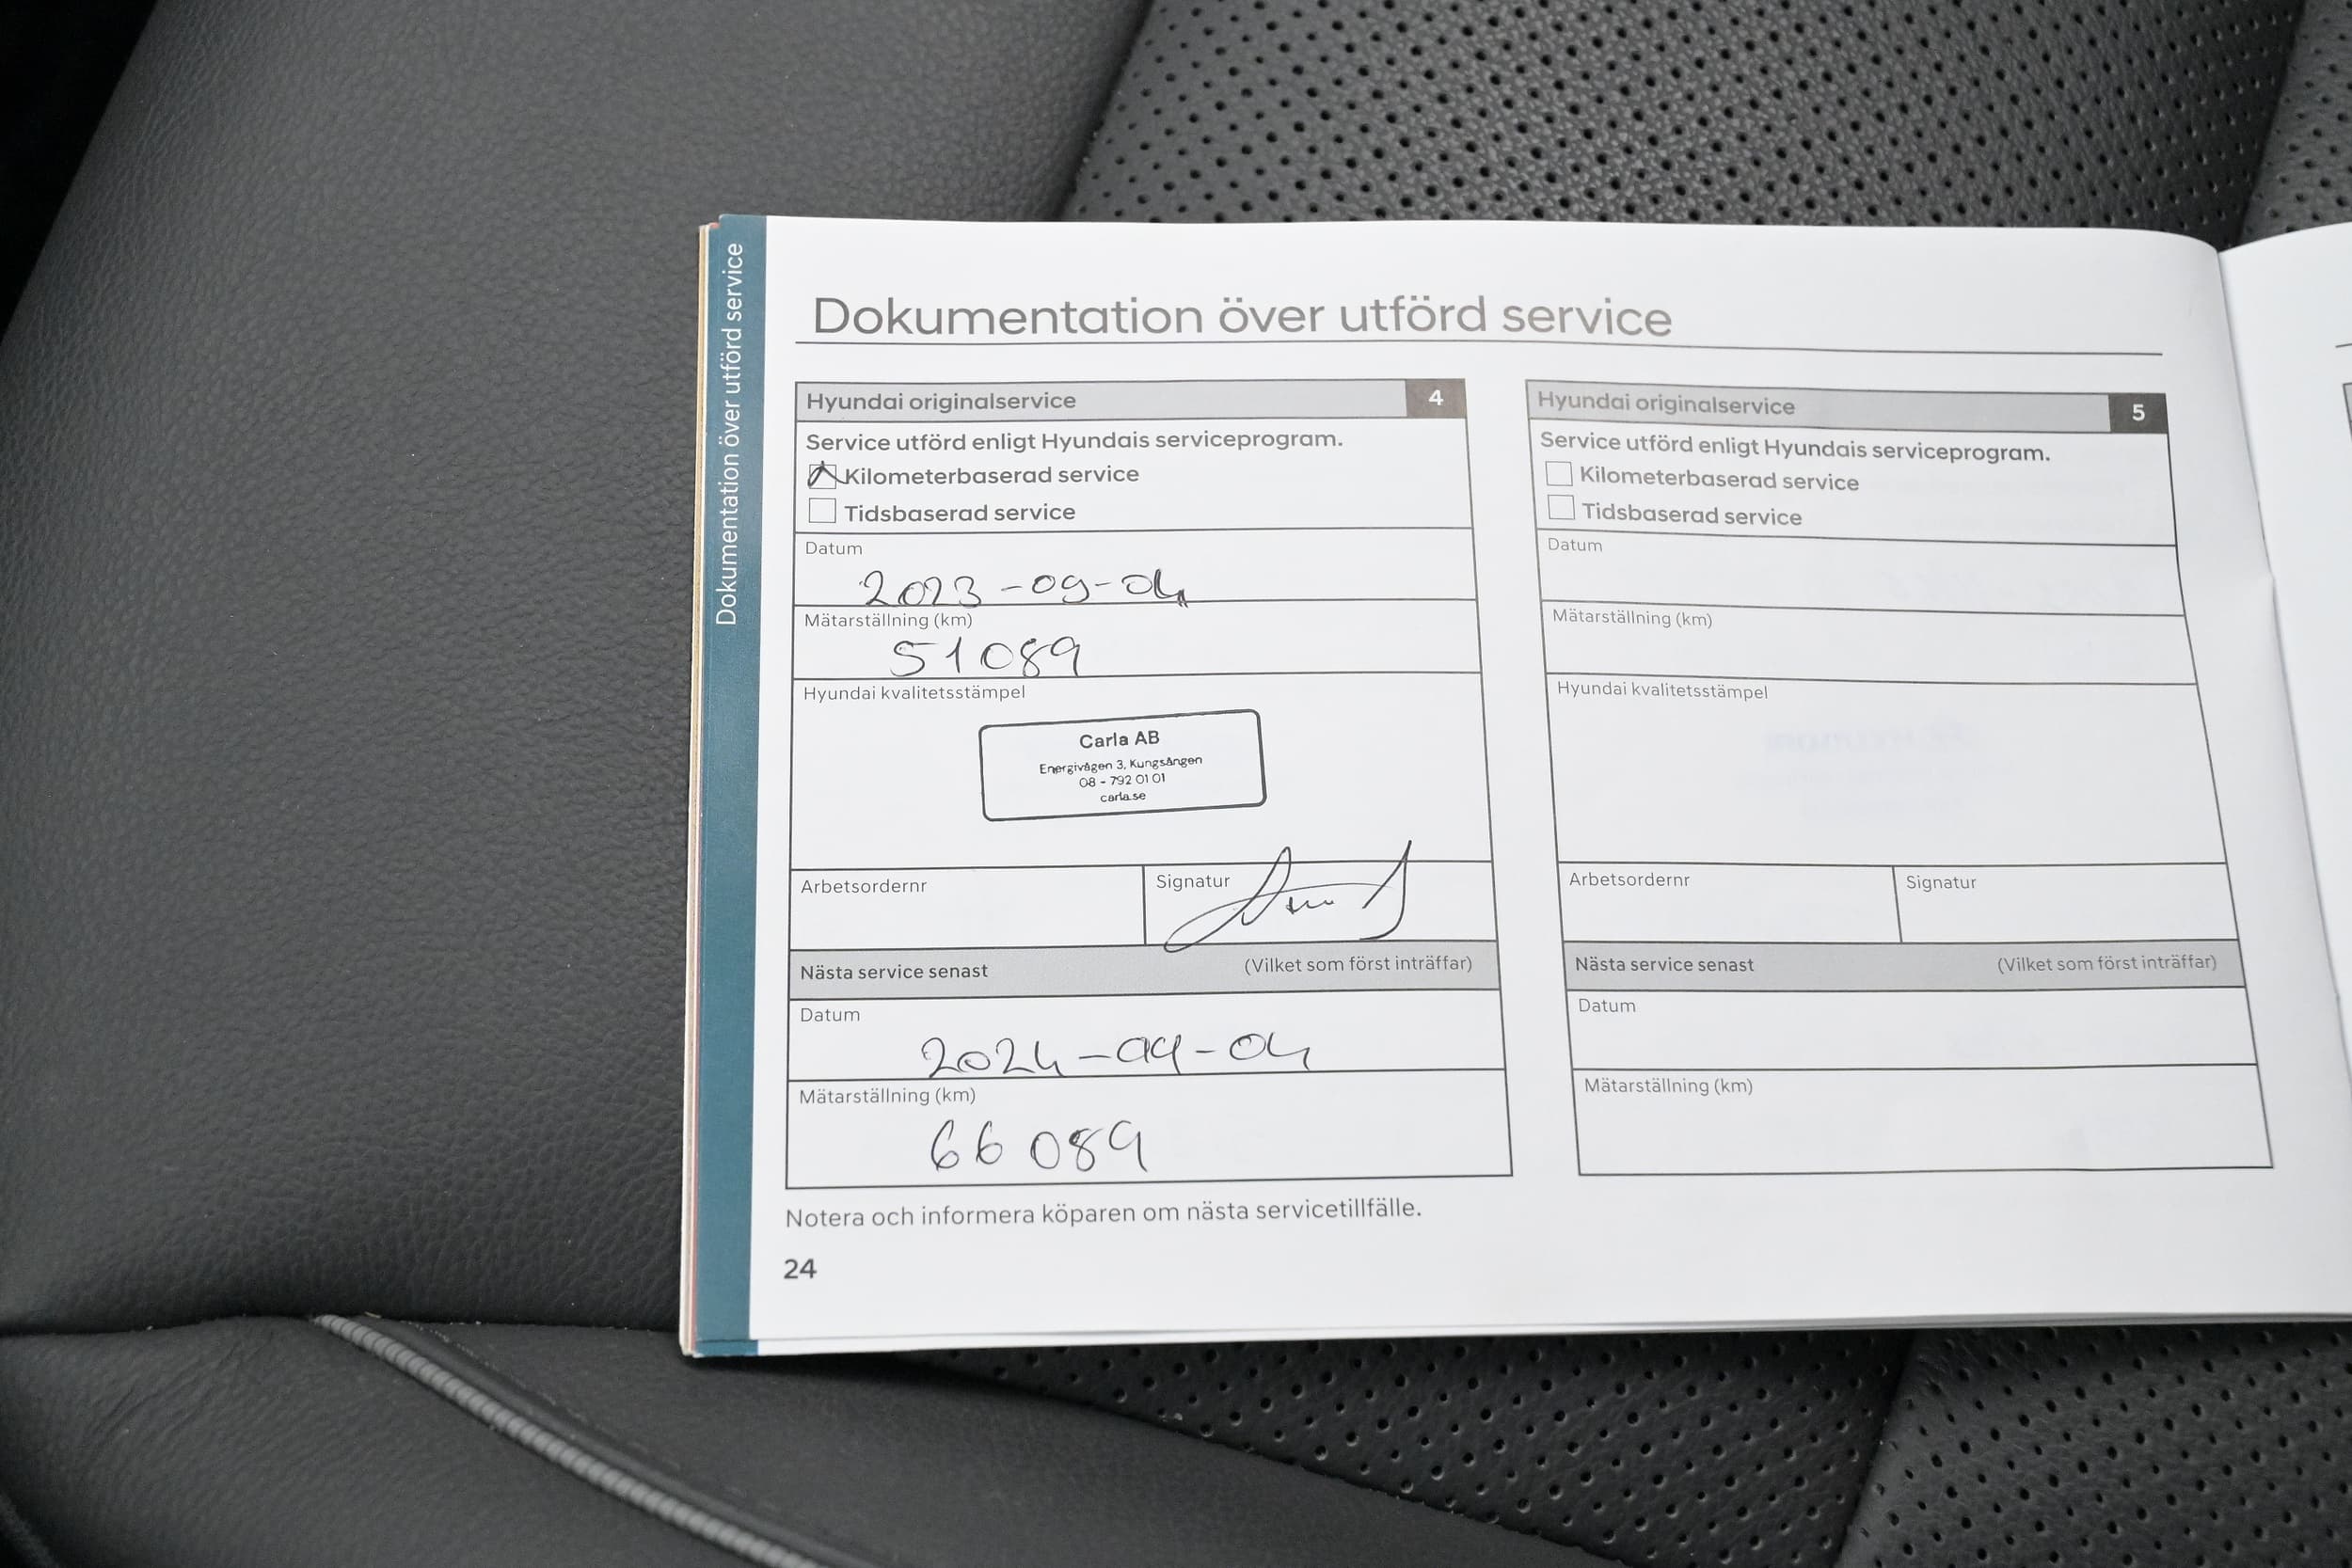 Dokumentation över utförd service
Dokumentation över utförd service
Hyundai originalservice 4
Service utförd enligt Hyundais serviceprogram.
Kilometerbaserad service
Tidsbaserad service
Datum
2023-09-04
Mätarställning (km)
51089
Hyundai kvalitetsstämpel
Carla AB
Energivägen 3, Kungsängen
08 - 792 01 01
carla.se
Arbetsordernr
Signatur
Nästa service senast (Vilket som först inträffar)
Datum
2024-09-04
Mätarställning (km)
66 089
Hyundai originalservice 5
Service utförd enligt Hyundais serviceprogram.
Kilometerbaserad service
Tidsbaserad service
Datum
Mätarställning (km)
Hyundai kvalitetsstämpel
Arbetsordernr
Signatur
Nästa service senast (Vilket som först inträffar)
Datum
Mätarställning (km)
Notera och informera köparen om nästa servicetillfälle.
24